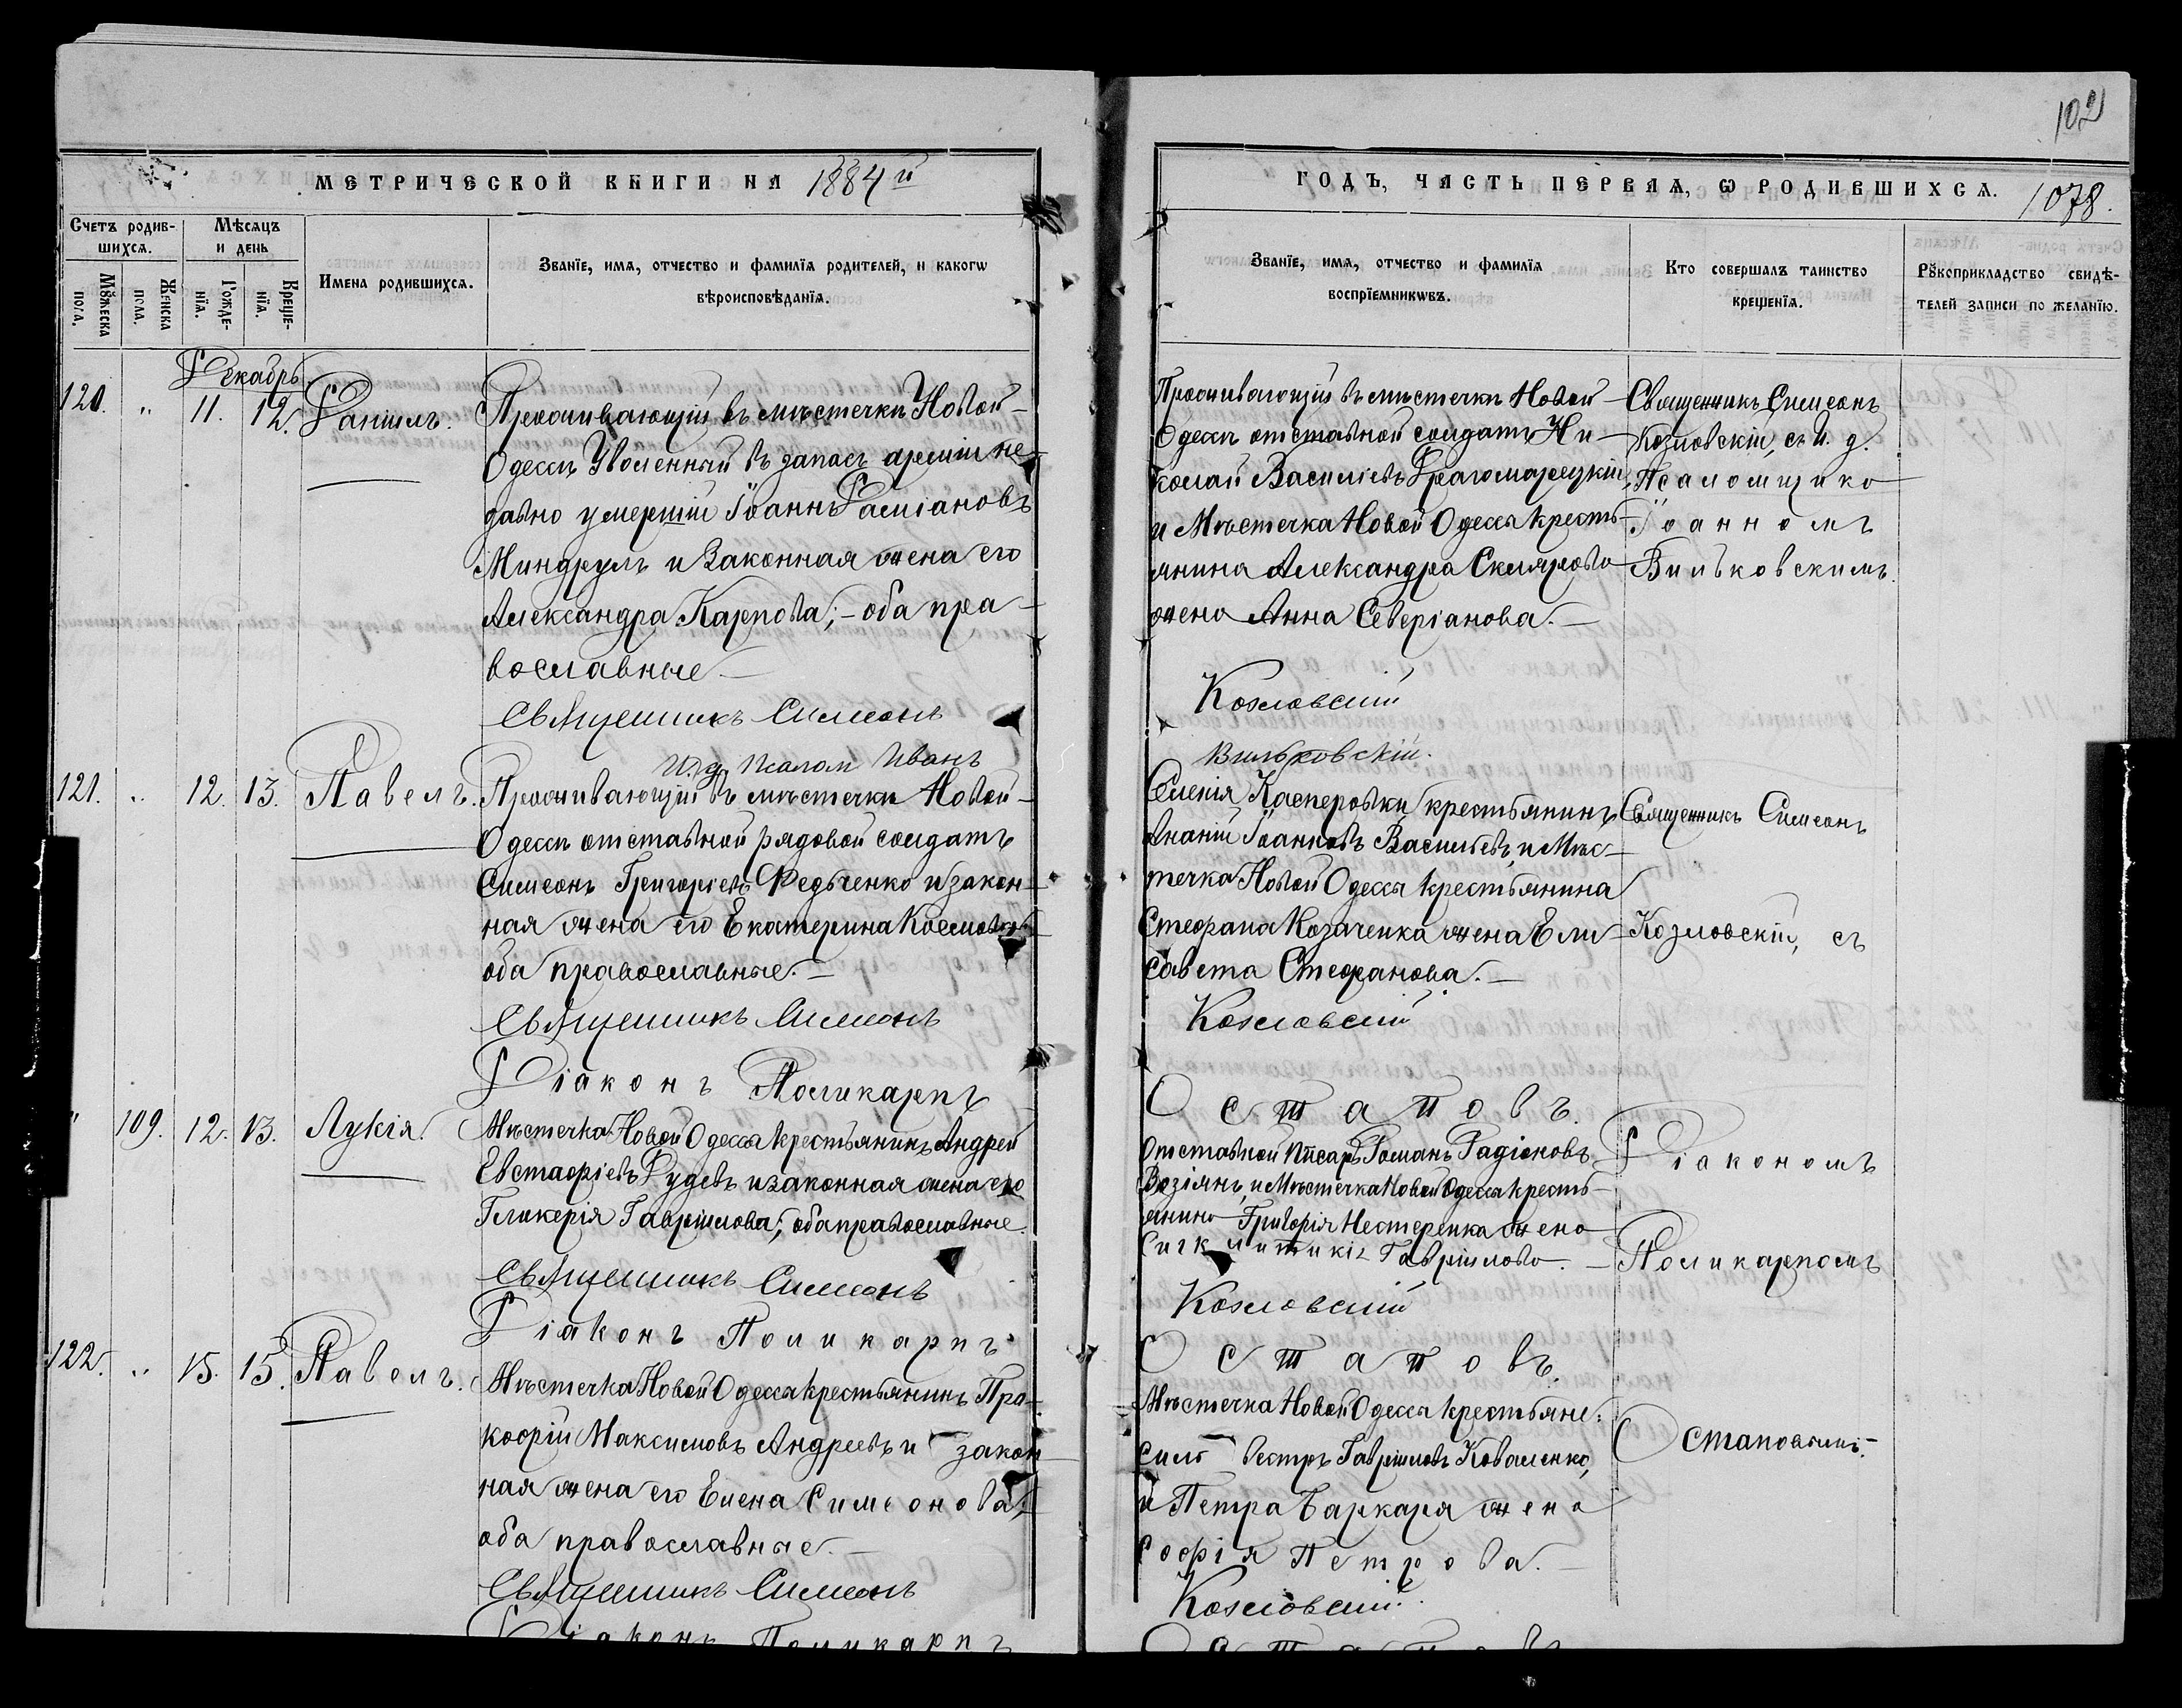 102
МЕТРИЧЕСКОЙ КНИГИ НА 1884й
ГОДЪ, ЧАСТЬ ПЕРВАЯ, Ѡ РОДИВШИХСѦ. 1078.
Счетъ родив-
шихсѧ.
Мѣсѧцъ
и день
Мꙋжеска
пола.
Женска
пола.
Рожде-
нїѧ.
Креще-
нїѧ.
Имена родившихсѧ.
Званїе, имѧ, отчество и фамилїѧ родителей, и какогѡ
вѣроисповѣданїѧ.
Званїе, имѧ, отчество и фамилїѧ
воспрїемникѡвъ.
Кто совершалъ таинство
крещенїѧ.
Рꙋкоприкладство свидѣ-
телей записи по желанїю.
Декабрь
120. " 11. 12. Данiилъ.
Проживающiй въ мѣстечкѣ Новой-
Одессѣ Уволенный въ запасъ армiи не
давно умершiй Iоаннъ Дамiановъ
Миндрулъ и Законная жена его
Александра Карпова; - оба пра-
вославные. -
Священникъ Симеонъ
И. д. Псалом Иванъ
Проживающiй въ мѣстечкѣ Новой-
Одессѣ отставной солдатъ Ни-
колай Василiевъ Драгомарецкiй,
и Мѣстечка Новой Одессы кресть-
янина Александра Склярова
жена Анна Северiанова. -
Козловскiй
Вильковскiй.
Священникъ Симеонъ
Козловскiй, съ И. д.
Псаломщика
Iоанномъ
Вильковскимъ.
121. " 12. 13. Павелъ.
Проживающiй въ мѣстечкѣ Новой-
Одессѣ отставной рядовой солдатъ
Симеонъ Григорiевъ Федьченко и закон-
ная жена его Екатерина Космова
оба православные. -
Священникъ Симеонъ
Дiаконъ Поликарпъ
Селенiя Касперовки крестьянинъ
Ананiй Iоанновъ Васильевъ, и Мѣс-
течка Новой Одессы крестьянина
Стефана Козаченка жена Ели-
савета Стефанова. -
Козловскiй
Остаповъ.
Священникъ Симеонъ
Козловскiй, съ
" 109. 12. 13. Лукiя.
Мѣстечка Новой Одессы крестьянинъ Андрей
Евстафiевъ Рудевъ и законная жена его
Гликерiя Гаврiилова; оба православные.
Священникъ Симеонъ
Дiаконъ Поликарпъ
Отставной писарь Романъ Радiоновъ
Возiянъ, и Мѣстечка Новой Одессы кресть-
янина Григорiя Нестеренка жена
Сигклитикiя Гаврiилова. -
Козловскiй
Остаповъ.
Дiакономъ
Поликарпомъ
122. " 15. 15. Павелъ.
Мѣстечка Новой Одессы крестьянинъ Про-
кофiй Максимовъ Андреевъ и закон
ная жена его Елена Симеонова;
оба православные. -
Священникъ Симеонъ
Дiаконъ Поликарпъ
Мѣстечка Новой Одессы крестьяне:
Силь вестръ Гаврiиловъ Коваленко,
и Петра Баркаря жена
Софiя Петрова. -
Козловскiй.
Остаповъ
Остаповымъ.